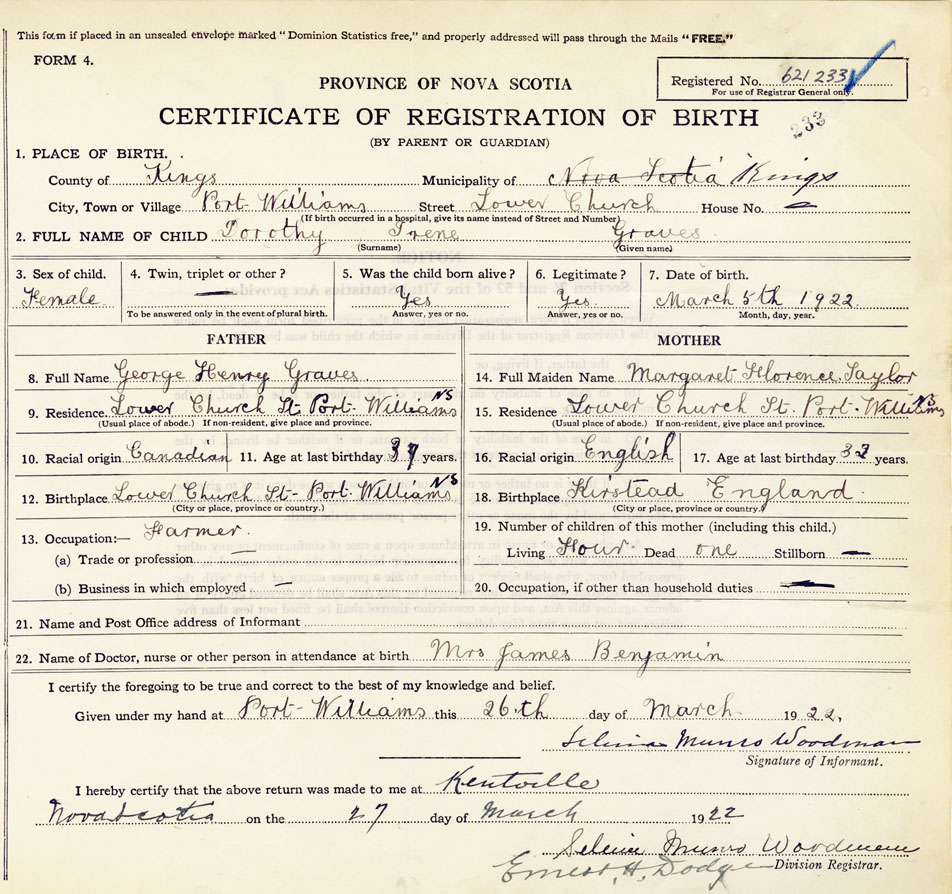 This form if placed in an unsealed envelope marked "Dominion Statistics free," and properly addressed will pass through the Mails "FREE."
FORM 4.
PROVINCE OF NOVA SCOTIA
Registered No. 621 233
For use of Registrar General only.
CERTIFICATE OF REGISTRATION OF BIRTH
233
(BY PARENT OR GUARDIAN)
1. PLACE OF BIRTH.
County of Kings Municipality of Nova Scotia Kings
City, Town or Village Port Williams Street Lower Church House No. –
(If birth occurred in a hospital, give its name instead of Street and Number)
2. FULL NAME OF CHILD Dorothy Irene Graves
(Surname) (Given name)
3. Sex of child. 4. Twin, triplet or other? 5. Was the child born alive? 6. Legitimate? 7. Date of birth.
Female — Yes Yes March 5th 1922
To be answered only in the event of plural birth. Answer, yes or no. Answer, yes or no. Month, day, year.
FATHER
8. Full Name George Henry Graves
9. Residence. Lower Church St. Port Williams NS
(Usual place of abode.) If non-resident, give place and province.
10. Racial origin Canadian 11. Age at last birthday 37 years.
12. Birthplace Lower Church St - Port Williams NS
(City or place, province or country.)
13. Occupation:— Farmer.
(a) Trade or profession
(b) Business in which employed –
MOTHER
14. Full Maiden Name Margaret Florence Taylor
15. Residence Lower Church St. Port Williams NS
(Usual place of abode.) If non-resident, give place and province.
16. Racial origin English 17. Age at last birthday 33 years.
18. Birthplace Kirstead England
(City or place, province or country.)
19. Number of children of this mother (including this child.)
Living Four Dead one Stillborn —
20. Occupation, if other than household duties —
21. Name and Post Office address of Informant
22. Name of Doctor, nurse or other person in attendance at birth Mrs James Benjamin
I certify the foregoing to be true and correct to the best of my knowledge and belief.
Given under my hand at Port Williams this 26th day of March 1922,
Selina Munro Woodman
Signature of Informant.
I hereby certify that the above return was made to me at Kentville
Nova Scotia on the 27 day of March 1922
Selina Munro Woodman
Ernest H. Dodge Division Registrar.